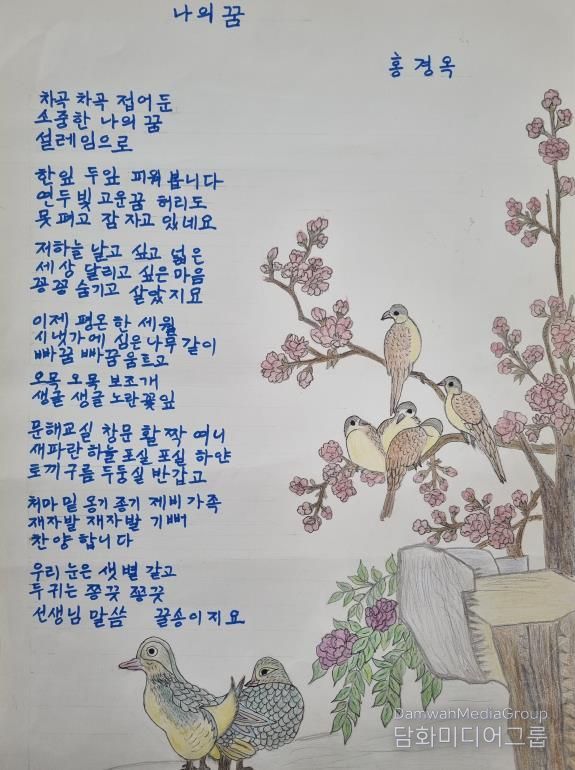 나의 꿈
홍경옥
차곡 차곡 접어 둔
소중한 나의 꿈
설레임으로
한잎 두잎 피워 봅니다
연두빛 고운꿈 허리도
못 펴고 잠 자고 있네요
저하늘 날고 싶고 넓은
세상 달리고 싶은 마음
꽁꽁 숨기고 살았지요
이제 평온한 세월
시냇가에 심은 나무 같이
빠꿈 빠꿈 움트고
오목 오목 보조개
생글 생글 노란꽃잎
문해교실 창문 활짝 여니
새파란 하늘 포실 포실 하얀
토끼구름 두둥실 반갑고
처마 밑 옹기 종기 제비 가족
재자발 재자발 기뻐
찬양 합니다
우리 눈은 샛별 같고
두 귀는 쫑긋 쫑긋
선생님 말씀 꿀송이지요
DamwahMediaGroup
담화미디어그룹